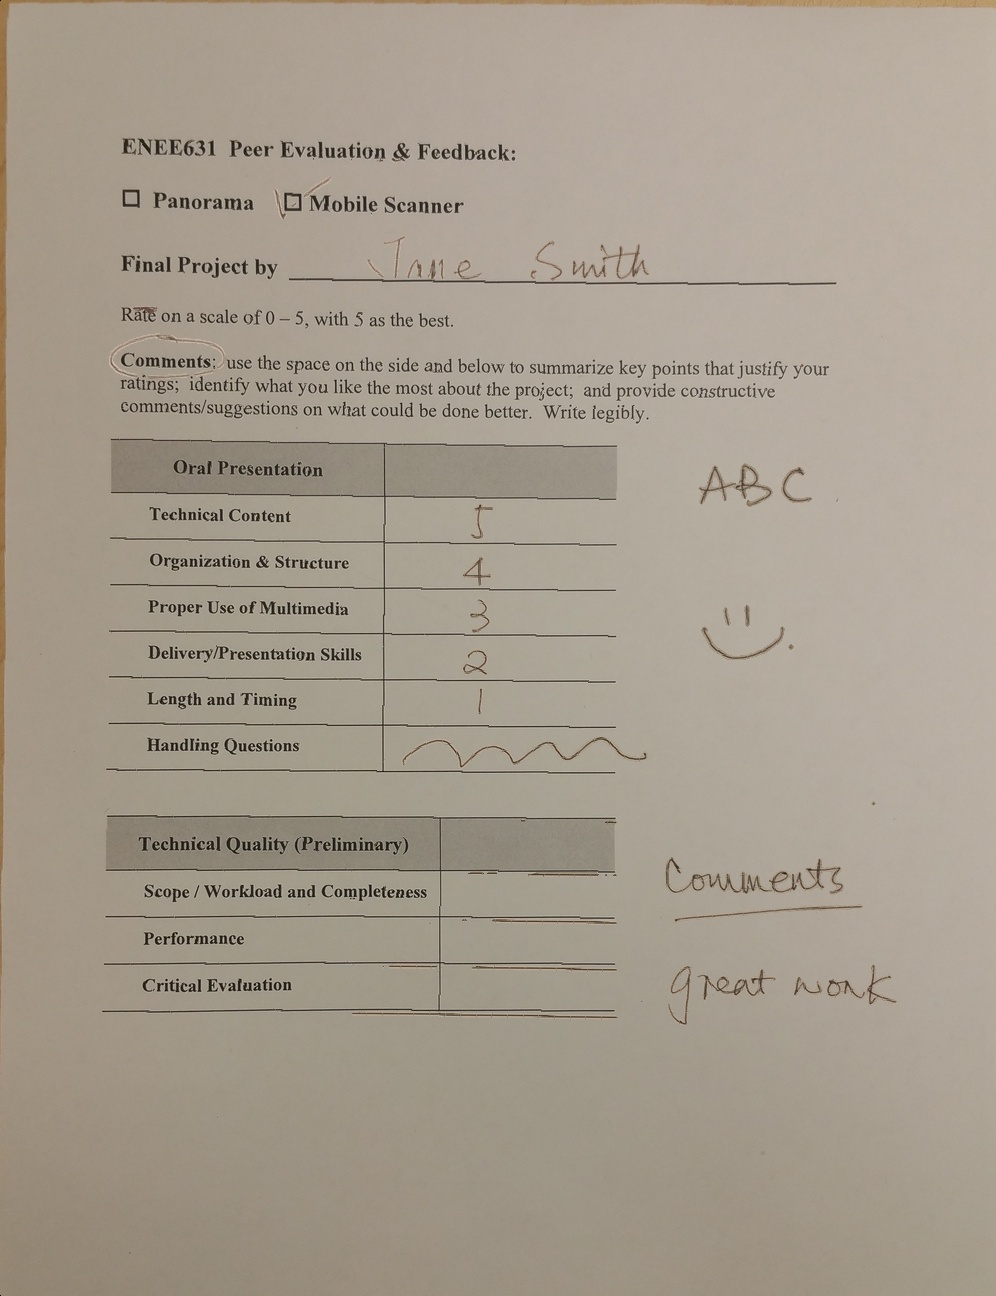 ENEE631 Peer Evaluation & Feedback:
☐ Panorama ☑ Mobile Scanner
Final Project by Jane Smith
Rate on a scale of 0 – 5, with 5 as the best.
Comments: use the space on the side and below to summarize key points that justify your
ratings; identify what you like the most about the project; and provide constructive
comments/suggestions on what could be done better. Write legibly.
Oral Presentation
ABC
Technical Content 5
Organization & Structure 4
Proper Use of Multimedia 3
Delivery/Presentation Skills 2
Length and Timing 1
Handling Questions
Technical Quality (Preliminary)
Comments
Scope / Workload and Completeness
Performance
Critical Evaluation
great work